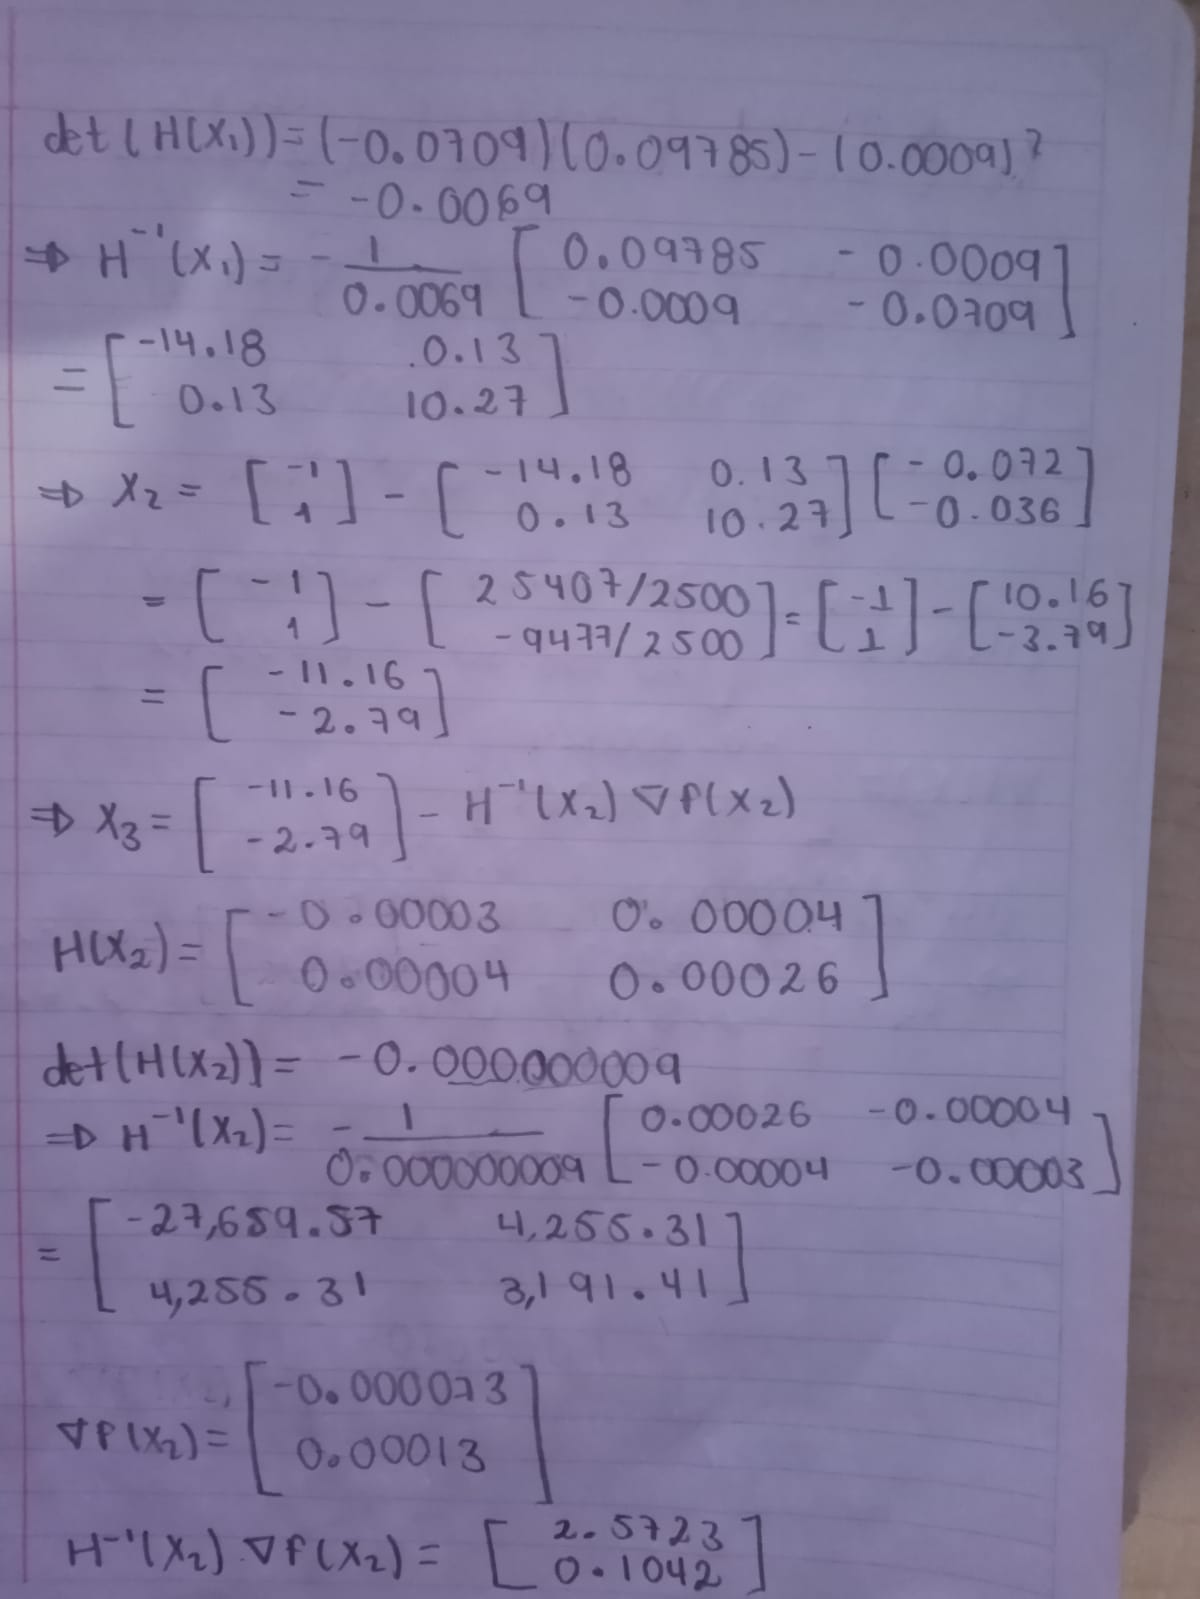 det(H(x₁)) = (-0.0709)(0.09785) - (0.0009)²
= -0.0069
⇒ H⁻¹(x₁) = - 1/0.0069 [ 0.09785 -0.0009 ; -0.0009 -0.0709 ]
= [ -14.18 0.13 ; 0.13 10.27 ]
⇒ x₂ = [ -1 ; 1 ] - [ -14.18 0.13 ; 0.13 10.27 ] [ -0.072 ; -0.036 ]
= [ -1 ; 1 ] - [ 25407/2500 ; -9477/2500 ] = [ -1 ; 1 ] - [ 10.16 ; -3.79 ]
= [ -11.16 ; -2.79 ]
⇒ x₃ = [ -11.16 ; -2.79 ] - H⁻¹(x₂) ∇f(x₂)
H(x₂) = [ -0.00003 0.00004 ; 0.00004 0.00026 ]
det(H(x₂)) = -0.000000009
⇒ H⁻¹(x₂) = - 1/0.000000009 [ 0.00026 -0.00004 ; -0.00004 -0.00003 ]
= [ -27,659.57 4,255.31 ; 4,255.31 3,191.41 ]
∇f(x₂) = [ -0.000073 ; 0.00013 ]
H⁻¹(x₂) ∇f(x₂) = [ 2.5723 ; 0.1042 ]